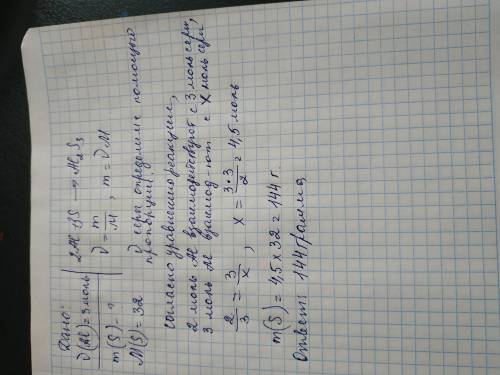 Дано:
ν(Al) = 3 моль
m(S) - ?
M(S) = 32
2Al + 3S → Al₂S₃
ν = m/M, m = νM
ν серы определим с помощью
пропорции:
согласно уравнению реакции,
2 моль Al взаимодействуют с 3 моль серы,
3 моль Al взаимод-ют с x моль серы
2/3 = 3/x, x = 3*3/2 = 4,5 моль
m(S) = 4,5 x 32 = 144 г.
Ответ: 144 грамма